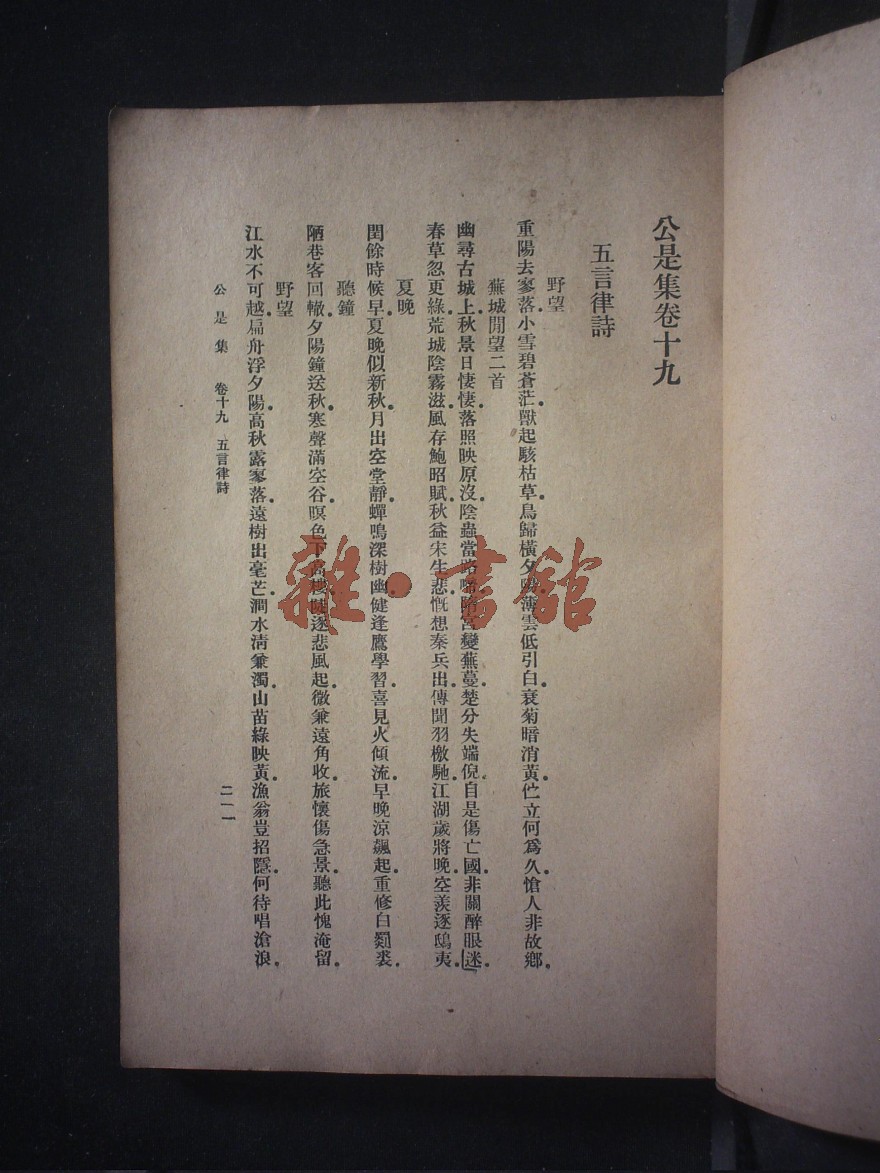 公是集卷十九
五言律詩
野望
重陽去寥落小雪碧蒼茫獸起駭枯草鳥歸橫夕陽薄雲低引白衰菊暗消黃伫立何爲久愴人非故鄕
蕪城閒望二首
幽尋古城上秋景日悽悽落照映原沒陰蟲當路啼隋宮變蕪蔓楚分失端倪自是傷亡國非關醉眼迷
春草忽更綠荒城陰霧滋風存鮑昭賦秋益宋生悲慨想秦兵出傳聞羽檄馳江湖歲將晚空羨逐鴟夷
夏晚
閏餘時候早夏晚似新秋月出空堂靜蟬鳴深樹幽健逢鷹學習喜見火傾流早晚涼飆起重修白罽裘
聽鐘
陋巷客回轍夕陽鐘送秋寒聲滿空谷暝色下高樓陡逐悲風起微兼遠角收旅懷傷急景聽此愧淹留
野望
江水不可越扁舟浮夕陽高秋露寥落遠樹出毫芒澗水淸兼濁山苗綠映黃漁翁豈招隱何待唱滄浪
公是集 卷十九 五言律詩
二一一
雜·書館